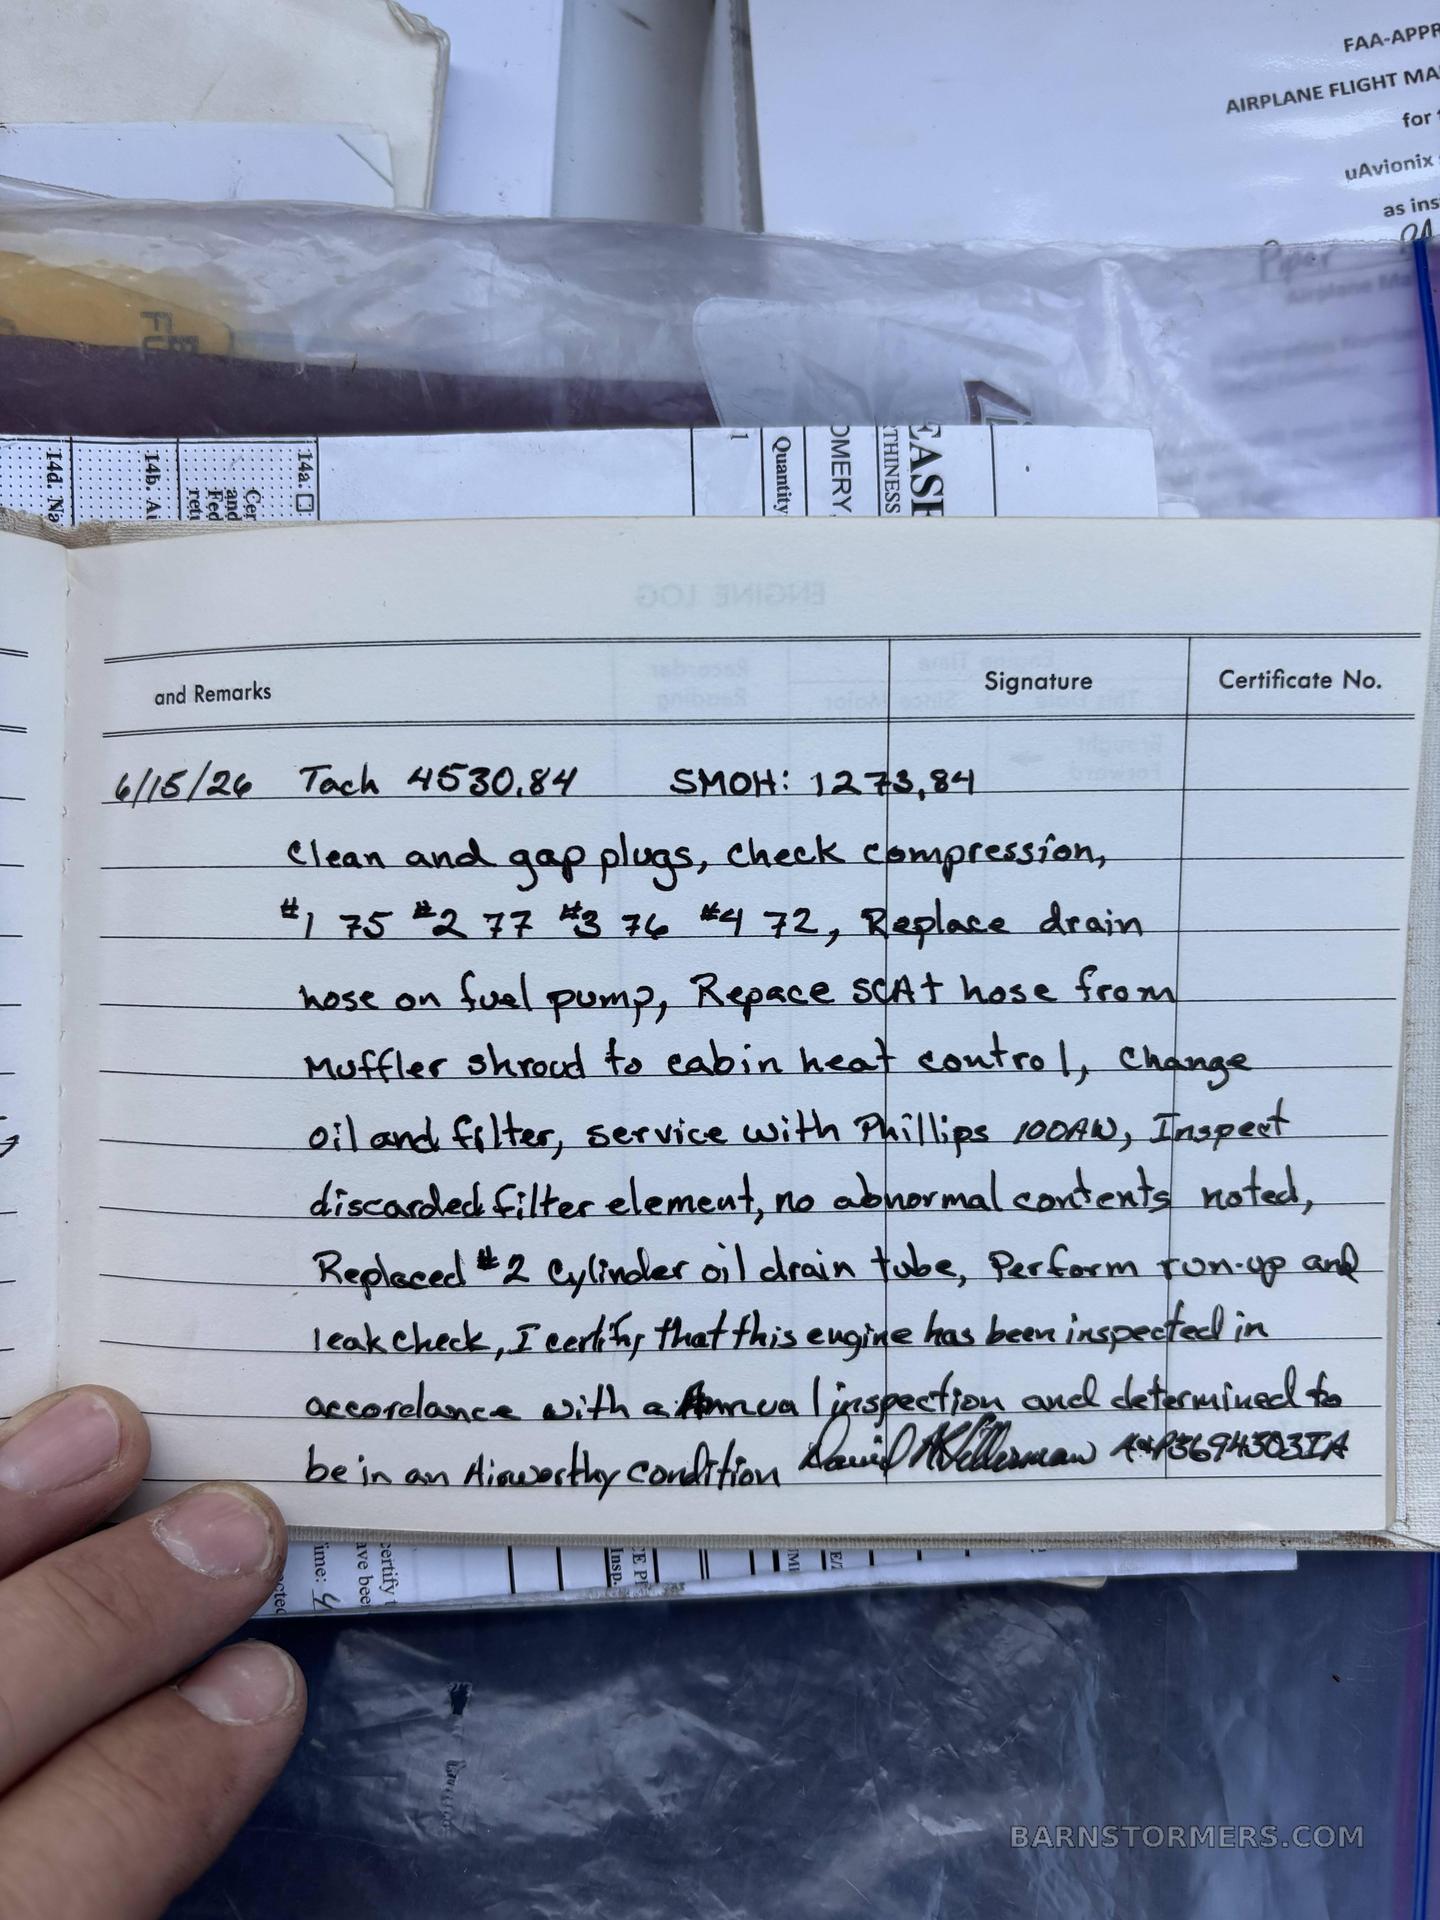 FAA-APPR
AIRPLANE FLIGHT MA
for t
uAvionix
as ins
Piper PA
14d. Na
14b. Ai
14a.
Cer
and
Fed
retu
1
Quantity
OMERY,
THINESS
EASE
ENGINE LOG
and Remarks Signature Certificate No.
6/15/26 Tach 4530.84 SMOH: 1273.84
Clean and gap plugs, Check compression,
#1 75 #2 77 #3 76 #4 72, Replace drain
hose on fuel pump, Repace SCAT hose from
Muffler shroud to cabin heat control, Change
oil and filter, service with Phillips 100AW, Inspect
discarded filter element, no abnormal contents noted,
Replaced #2 Cylinder oil drain tube, Perform run-up and
leak check, I certify that this engine has been inspected in
accordance with a Annual inspection and determined to
be in an Airworthy condition David A&P3694303IA
ime: 4
ave bee
certify t
Insp.
CE P
BARNSTORMERS.COM